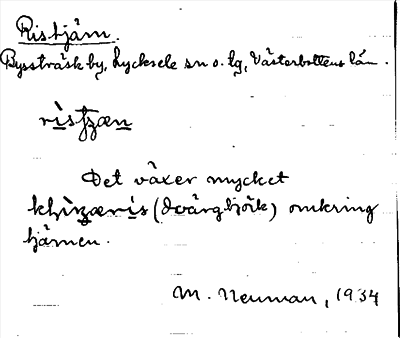 Ristjärn.
Bysträsk by, Lycksele sn o. lg, Västerbottens län.
Det växer mycket
(dvärgbjörk) omkring
tjärnen.
M. Neuman, 1934